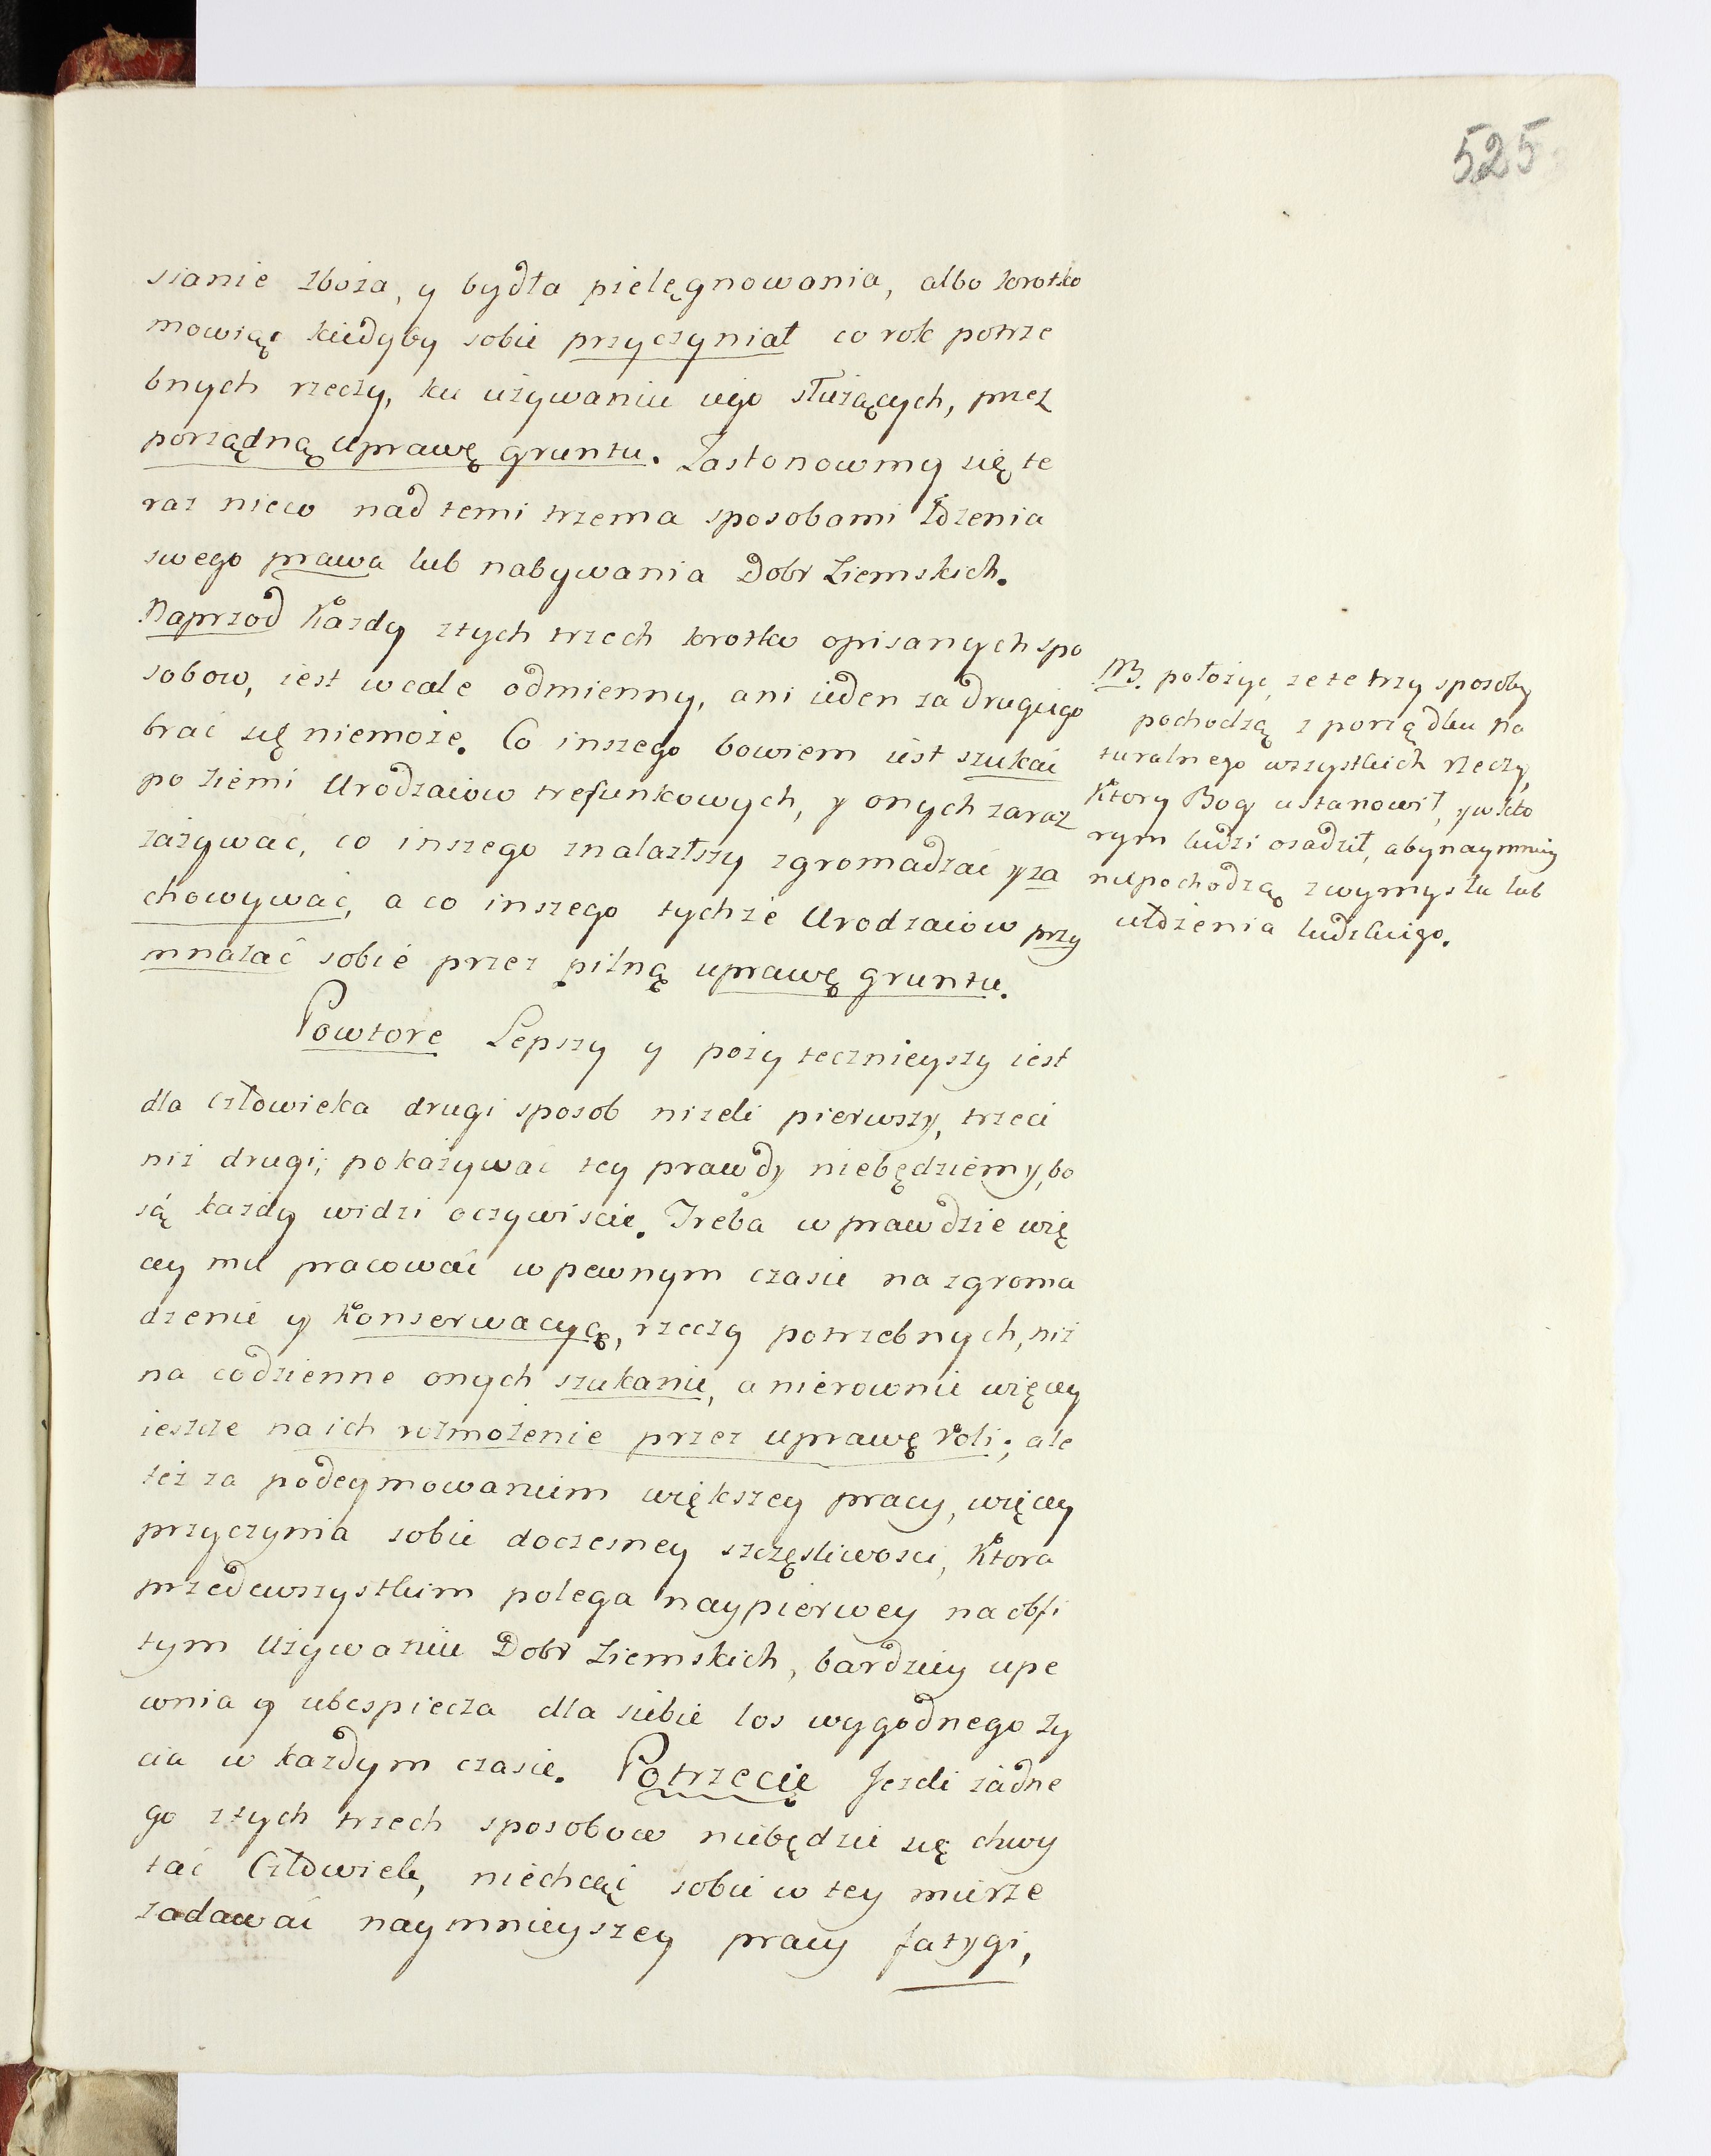 525
sianie zboża, y bydła pielęgnowania, albo krotko
mowiąc kiedyby sobie przyczyniał co rok potrze
bnych rzeczy, ku używaniu iego służących, przez
porządną uprawę gruntu. Zastonowmy się te
raz nieco nad temi trzema sposobami
swego prawa lub nabywania Dobr Ziemskich.
Naprzod Każdy ztych trzech krotko opisanych spo
sobow, iest wcale odmienny, ani ieden za drugiego
brać się niemoże. Co inszego bowiem iest szukać
po ziemi Urodzaiow trefunkowych, y onych zaraz
zażywać, co inszego znalazłszy zgromadzać y za
chowywać, a co inszego tychże Urodzaiow przy
mnażać sobie przez pilną uprawę gruntu.
Powtore Lepszy y pożytecznieyszy iest
dla człowieka drugi sposob niżeli pierwszy, trzeci
niż drugi; pokazywać tey prawdy niebędziemy, bo
ią każdy widzi oczywiscie. Treba wprawdzie wię
cey mu pracować w pewnym czasie na zgroma
dzenie y Konserwacyą, rzeczy potrzebnych, niż
na codzienne onych szukanie, a nierownie więcey
ieszcze na ich rozmożenie przez uprawę Roli; ale
też za podeymowaniem większey pracy, więcey
przyczynia sobie doczesney szczęsliwosci, Ktora
przedewszystkim polega naypierwey na obfi
tym Używaniu Dobr Ziemskich, bardziey upe
wnia y ubespiecza dla siebie los wygodnego ży
cia w każdym czasie. Potrzecie Jezeli żadne
go ztych trzech sposobow niebędzie się chwy
tać Człowiek, niechcąc sobie w tey mierze
zadawać naymnieyszey pracy fatygi,
NB. położyć, że te trzy sposoby
pochodzą z porządku na
turalnego wszystkich rzeczy,
Ktory Bog ustanowił, y w kto
rym ludzi osadził, aby naymniey
niepochodzą z wymysłu lub
ludzkiego.